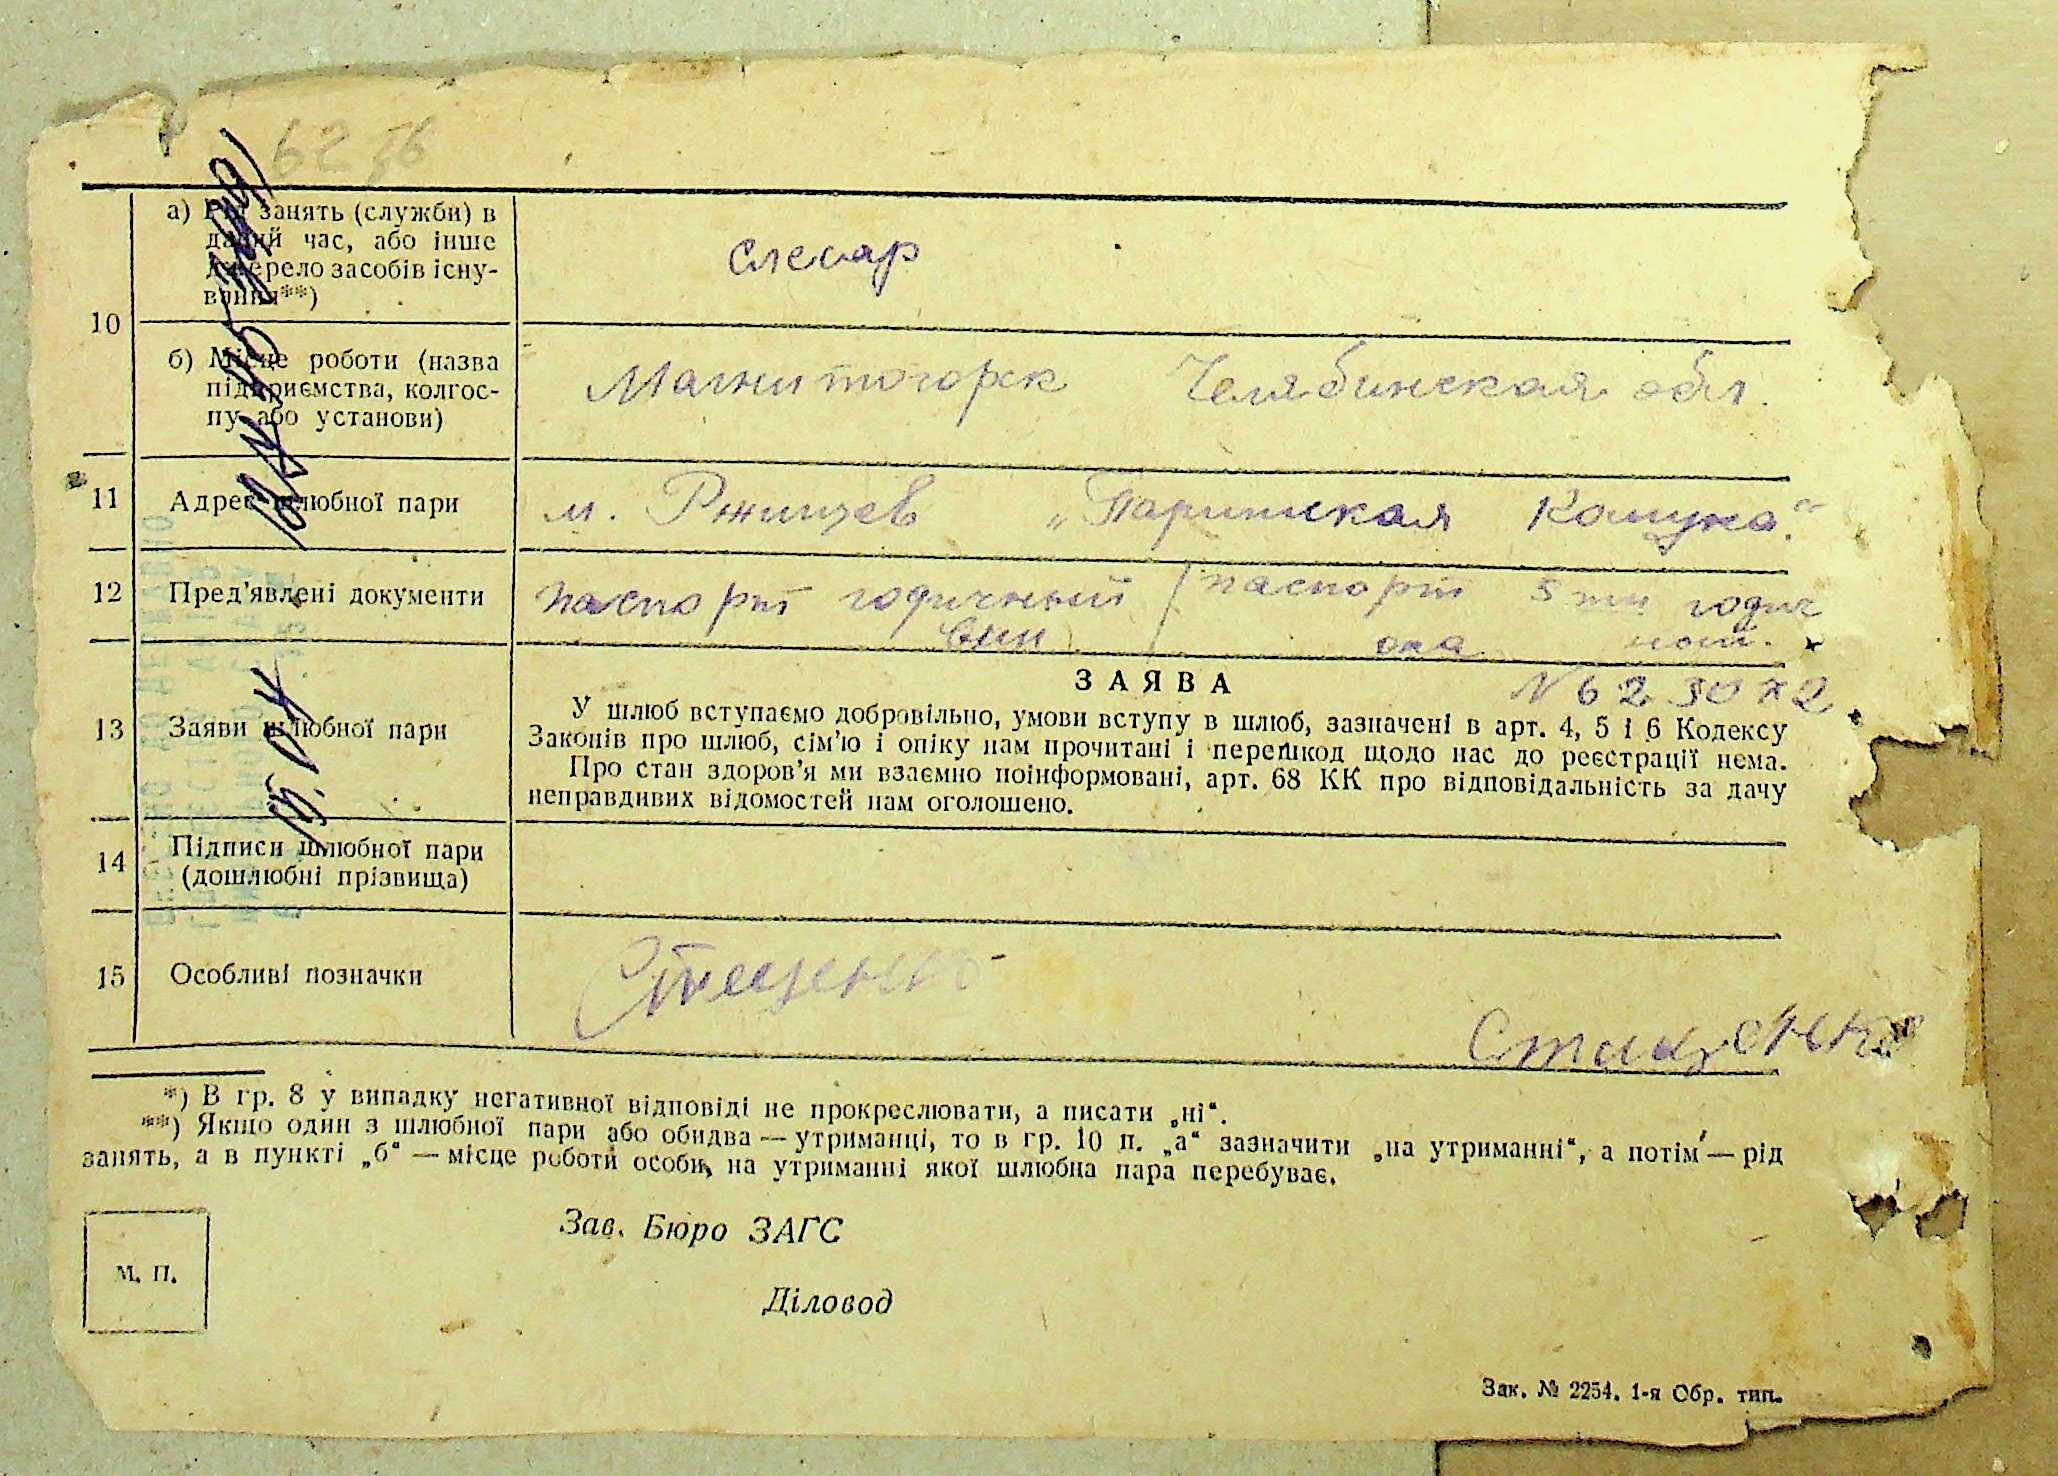 6236
10
а) Рід занять (служби) в
даний час, або інше
джерело засобів існу-
вання**)
слесар
б) Місце роботи (назва
підприємства, колгос-
пу або установи)
Магнитогорск Челябинская обл.
11
Адрес шлюбної пари
м. Ржищев „Парижская Комуна."
12
Пред'явлені документи
паспорт годичный / паспорт 5 ти годич
она ный.
N 623072
13
Заяви шлюбної пари
ЗАЯВА
У шлюб вступаємо добровільно, умови вступу в шлюб, зазначені в арт. 4, 5 і 6 Кодексу
Законів про шлюб, сім'ю і опіку нам прочитані і перешкод щодо нас до реєстрації нема.
Про стан здоров'я ми взаємно поінформовані, арт. 68 КК про відповідальність за дачу
неправдивих відомостей нам оголошено.
14
Підписи шлюбної пари
(дошлюбні прізвища)
15
Особливі позначки
*) В гр. 8 у випадку негативної відповіді не прокреслювати, а писати „ні“.
**) Якщо один з шлюбної пари або обидва — утриманці, то в гр. 10 п. „а“ зазначити „на утриманні“, а потім — рід
занять, а в пункті „б“ — місце роботи особи, на утриманні якої шлюбна пара перебуває.
Зав. Бюро ЗАГС
М. П.
Діловод
Зак. № 2254. 1-я Обр. тип.